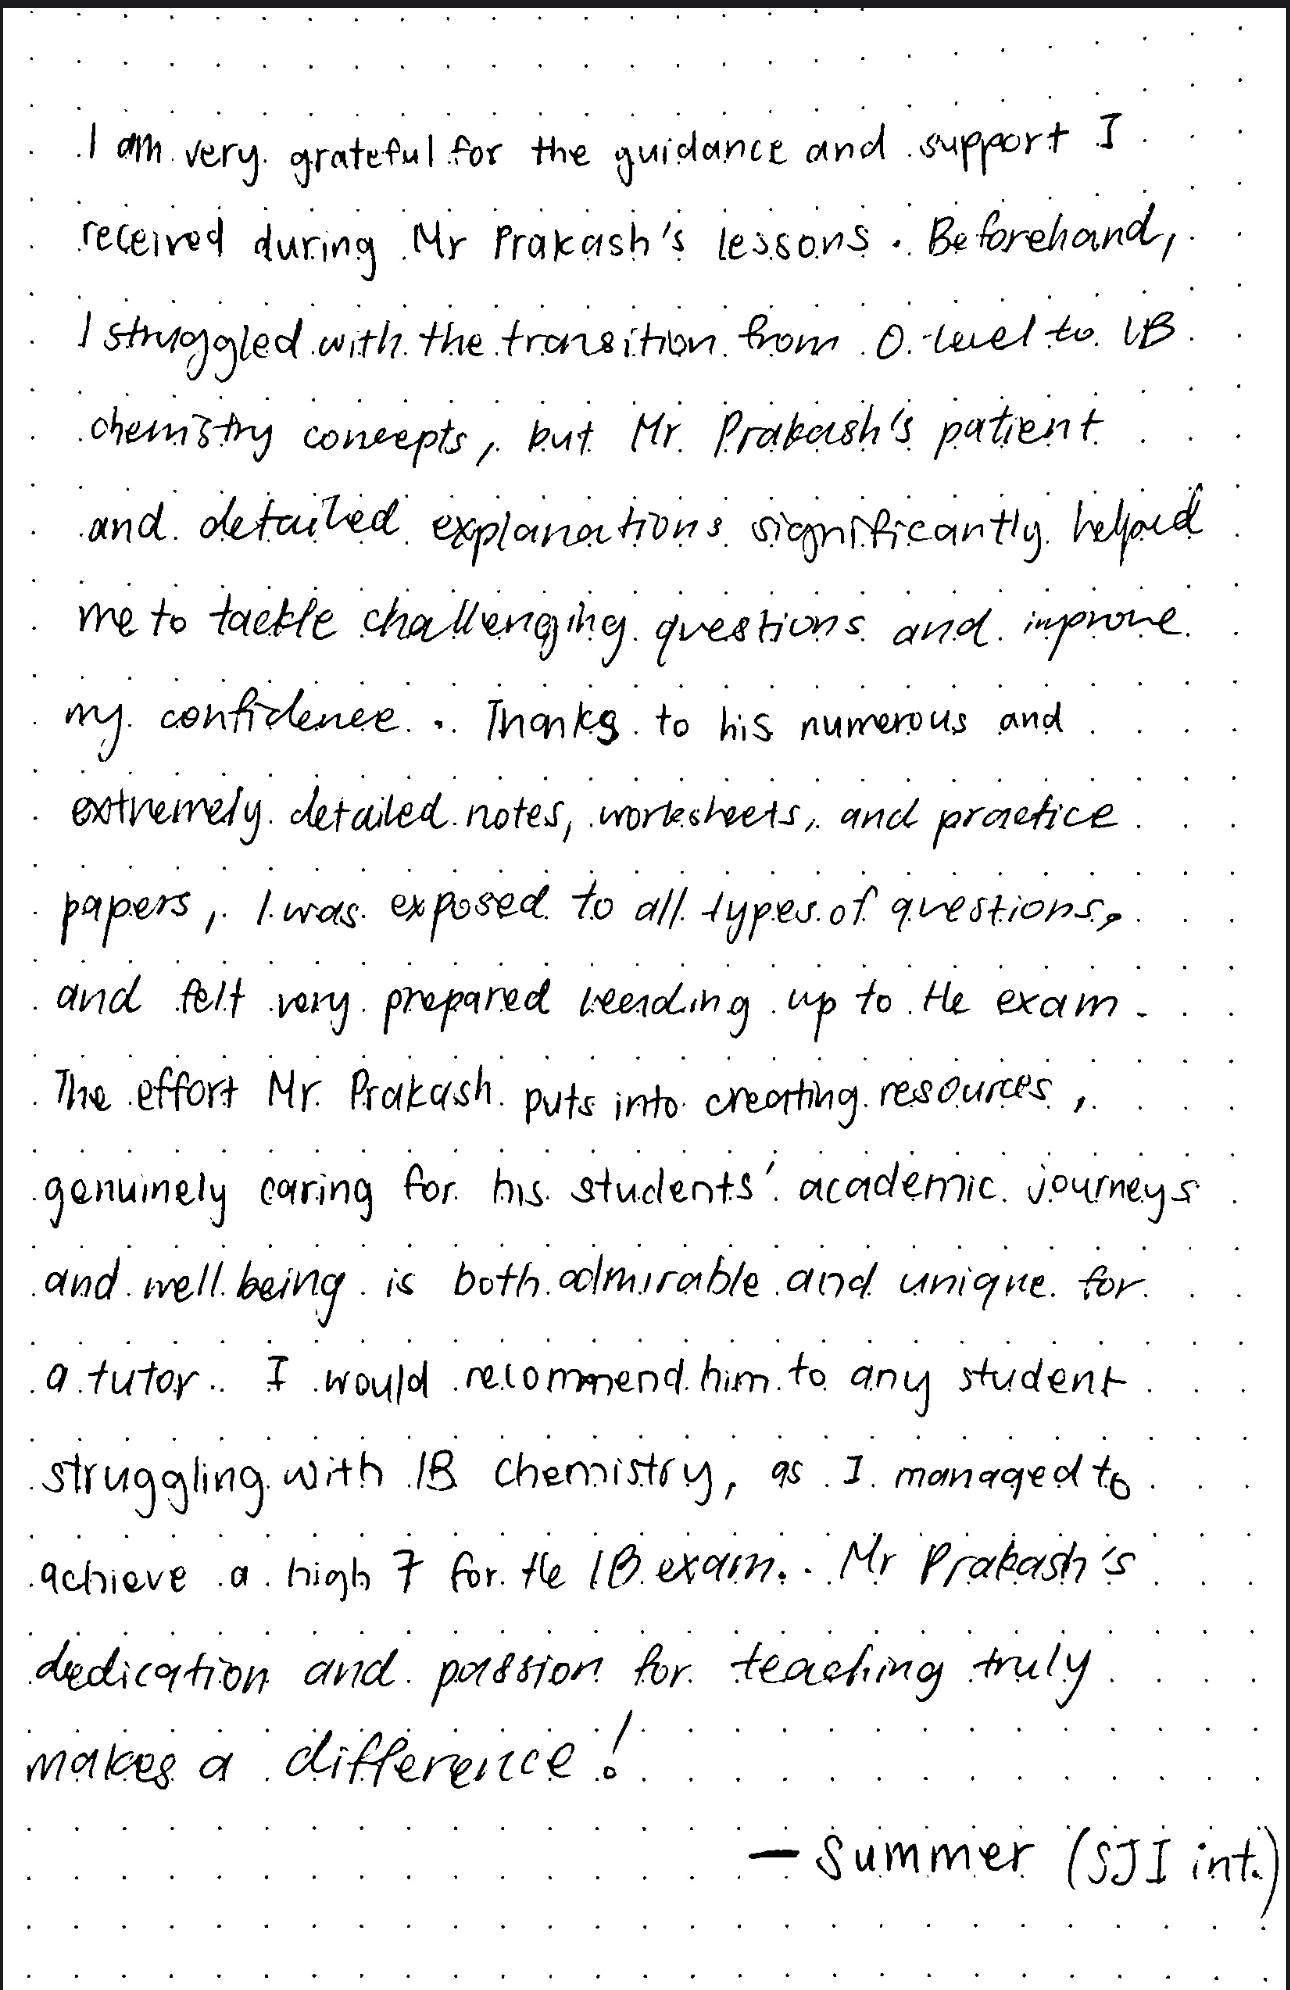 I am very grateful for the guidance and support I
received during Mr Prakash's lessons. Beforehand,
I struggled with the transition from O-level to IB
chemistry concepts, but Mr. Prakash's patient
and detailed explanations significantly helped
me to tackle challenging questions and improve
my confidence. Thanks to his numerous and
extremely detailed notes, worksheets, and practice
papers, I was exposed to all types of questions,
and felt very prepared leading up to the exam.
The effort Mr. Prakash puts into creating resources,
genuinely caring for his students' academic journeys
and well being is both admirable and unique for
a tutor. I would recommend him to any student
struggling with IB Chemistry, as I managed to
achieve a high 7 for the IB exam. Mr Prakash's
dedication and passion for teaching truly
makes a difference!
— Summer (SJI int.)